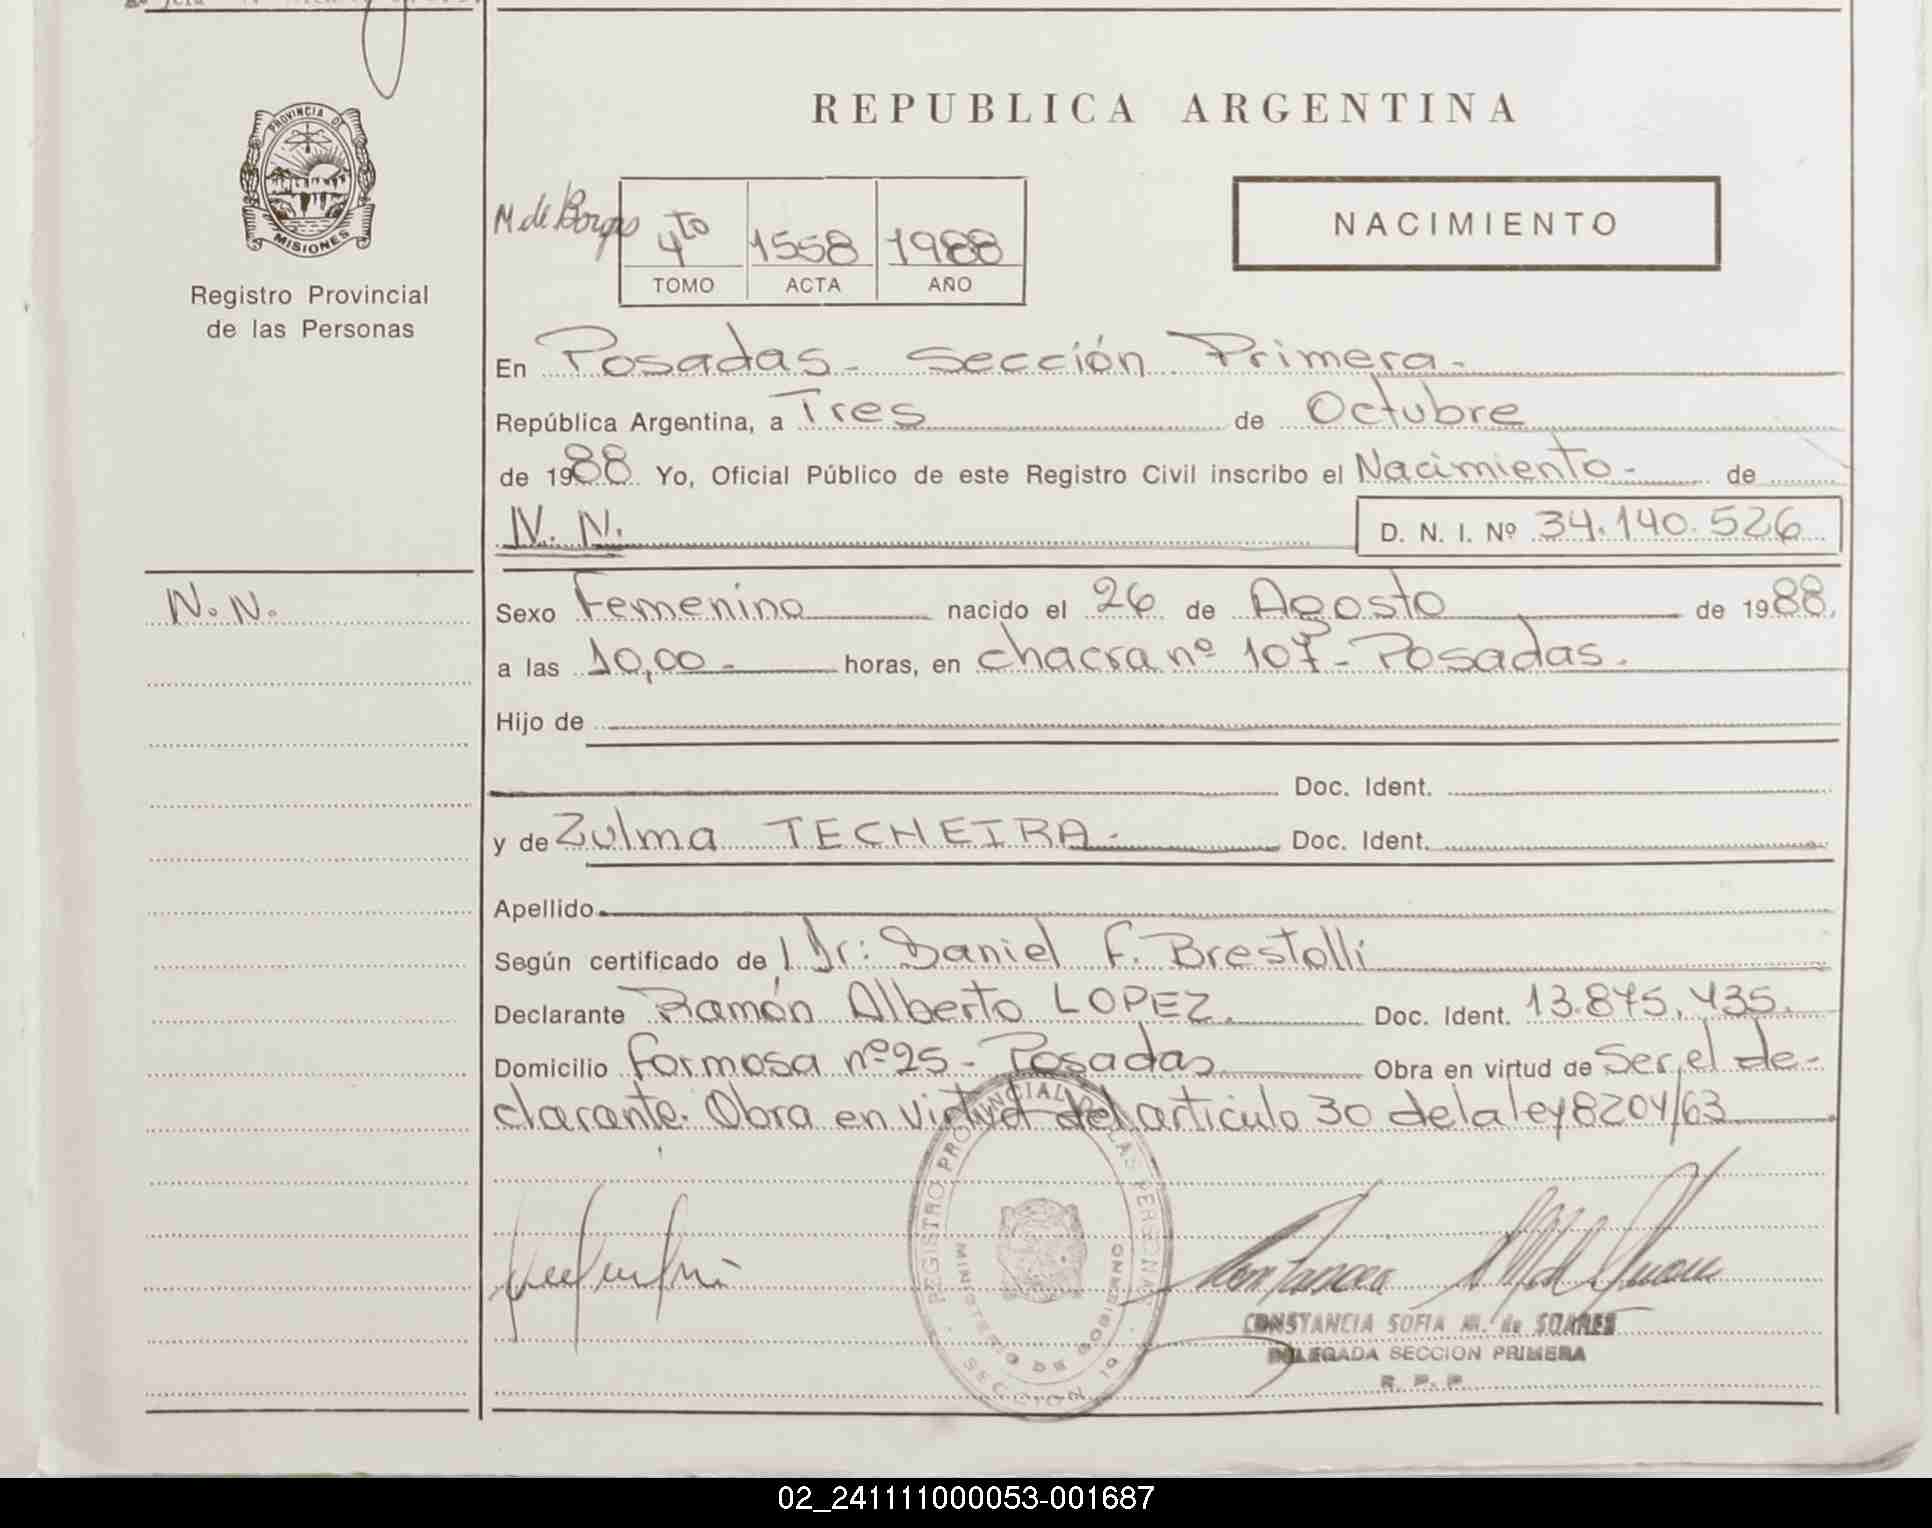 REPUBLICA ARGENTINA
PROVINCIA DE
MISIONES
Registro Provincial
de las Personas
M. de Borges
4to 1558 1988
TOMO ACTA AÑO
NACIMIENTO
En Posadas - Sección Primera -
República Argentina, a Tres de Octubre
de 1988 Yo, Oficial Público de este Registro Civil inscribo el Nacimiento - de
N. N. D. N. I. Nº 34.140.526
N. N.
Sexo Femenino nacido el 26 de Agosto de 1988.
a las 10,00 - horas, en chacra nº 107 - Posadas.
Hijo de
Doc. Ident.
y de Zulma TECHEIRA - Doc. Ident.
Apellido
Según certificado de Dr: Daniel F. Brestolli
Declarante Ramón Alberto LOPEZ. Doc. Ident. 13.875.435.
Domicilio Formosa nº 25 - Posadas Obra en virtud de Ser el de-
clarante. Obra en virtud del articulo 30 de la ley 8204/63
REGISTRO PROVINCIAL DE LAS PERSONAS
MINISTERIO DE GOBIERNO
SECCION 1a
CONSTANCIA SOFIA M. de SOARES
DELEGADA SECCION PRIMERA
R. P. P.
02_241111000053-001687